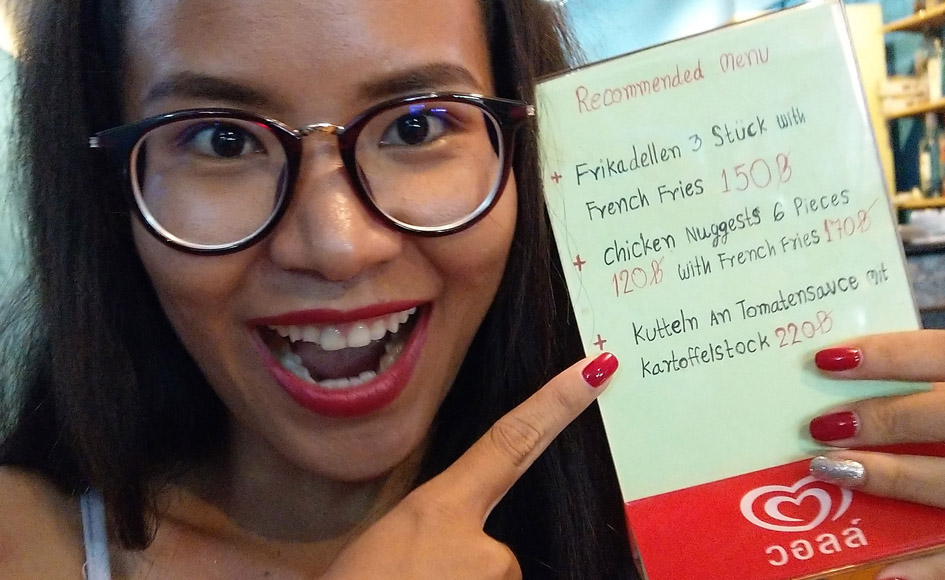 Recommended Menu
+ Frikadellen 3 Stück with
French Fries 150฿
+ Chicken Nuggests 6 Pieces
120฿ with French Fries 170฿
+ Kutteln An Tomatensauce mit
Kartoffelstock 220฿
วอลล์